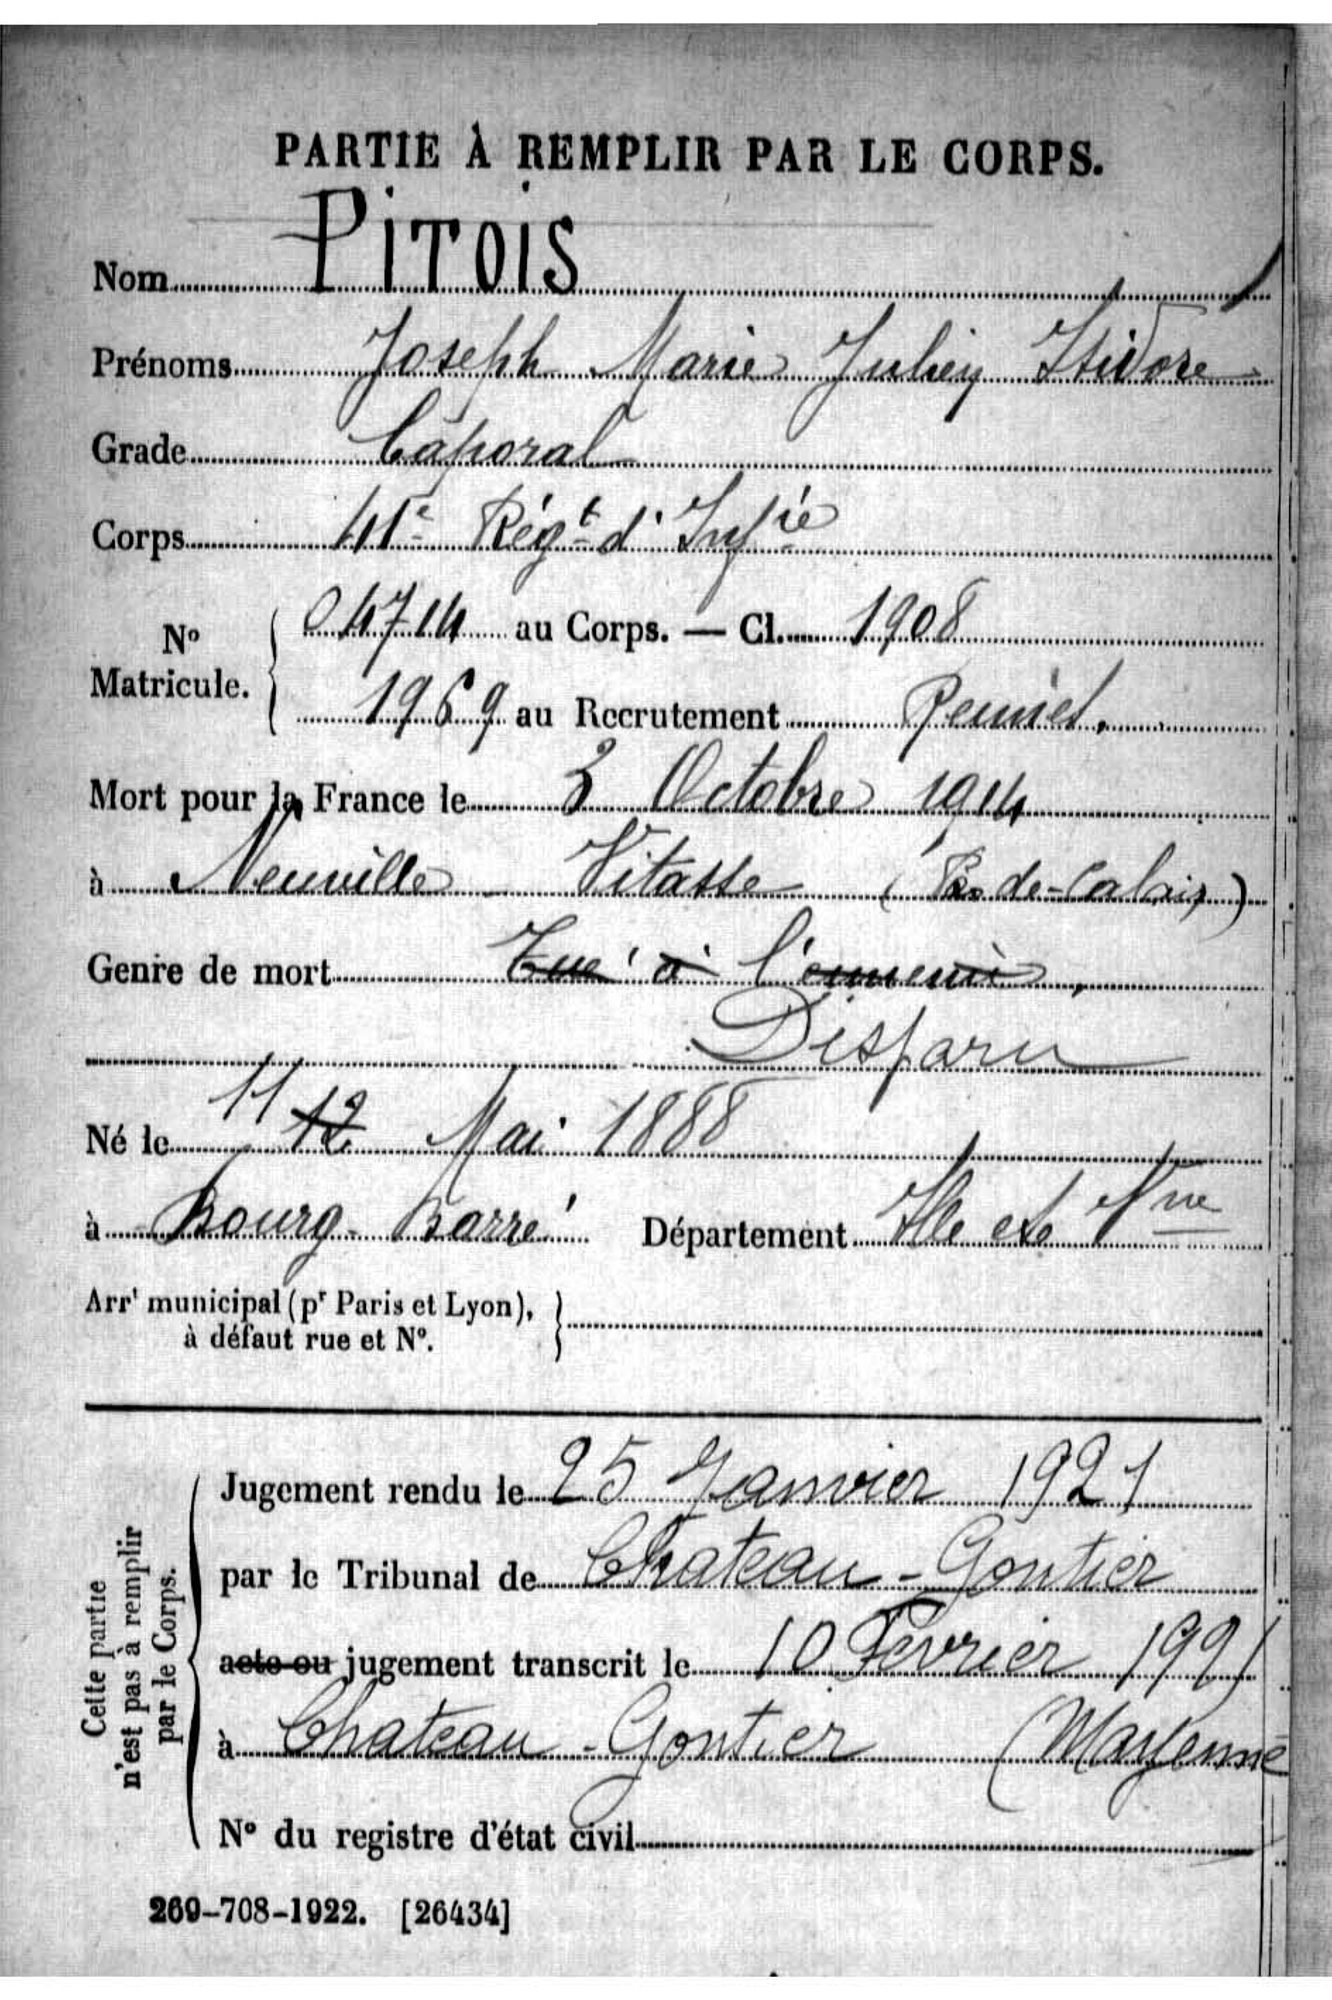 PARTIE À REMPLIR PAR LE CORPS.
Nom PITOIS
Prénoms Joseph Marie Julien Isidore
Grade Caporal
Corps 41e Régt d'Infie
No Matricule. 04714 au Corps. — Cl. 1908
1969 au Recrutement Rennes.
Mort pour la France le 3 Octobre 1914
à Neuville - Vitasse (Pas de-Calais)
Genre de mort Tué à l'ennemi,
Disparu
Né le 11 12 Mai 1888
à Bourg-Barré Département Ille et Vne
Arrt municipal (pr Paris et Lyon),
à défaut rue et No.
Cette partie
n'est pas à remplir
par le Corps.
Jugement rendu le 25 Janvier 1921
par le Tribunal de Chateau-Gontier
acte ou jugement transcrit le 10 Fevrier 1921
à Chateau-Gontier (Mayenne
No du registre d'état civil
269-708-1922. [26434]